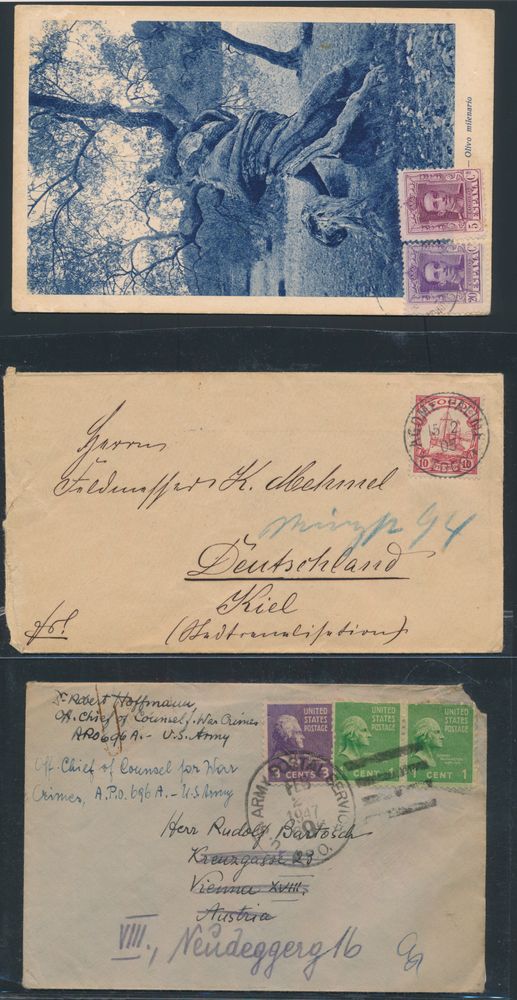 — Olivo milenario
ESPAÑA
5 Cs
ESPAÑA
20 Cs
TOGO
10 10
AGOME-PALIME
5 2
05
Herrn
Feldmesser K. Mehmel
94
Deutschland
Kiel
(Stadtcanalisation)
Dr. Robert Hoffmann,
Off. Chief of Counsel f. War Crimes
APO 696 A. - U.S. Army
Off. Chief of Counsel for War
Crimes, A.P.O. 696 A. - US Army
UNITED
STATES
POSTAGE
3 CENTS 3
UNITED
STATES
POSTAGE
CENT 1
UNITED
STATES
POSTAGE
1 CENT 1
U.S. ARMY POSTAL SERVICE
FEB
2
1947
A.P.O.
Herr Rudolf Bartosch
Kreuzgasse 23
Vienna XVIII.
Austria
VIII., Neudeggerg 16